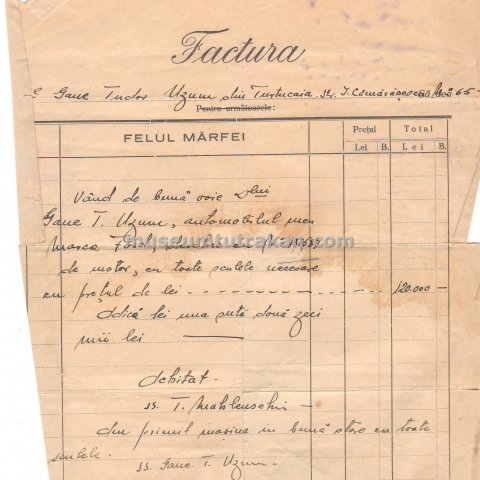 Factura
Gane Tudor Uzum din Turtucaia, str. I. Comășescu No 65
Pentru următoarele:
FELUL MĂRFEI
Prețul Total
Lei B. Lei B.
Vând de bună voie Dlui
Gane T. Uzum, automobilul meu
Marca
de motor, cu toate sculele necesare
cu prețul de lei 120.000
Adică lei una sută două zeci
mii lei
Achitat.
ss. T.
Am primit mașina în bună stare cu toate
sculele.
ss. Gane T. Uzum
museumtutrakan.com